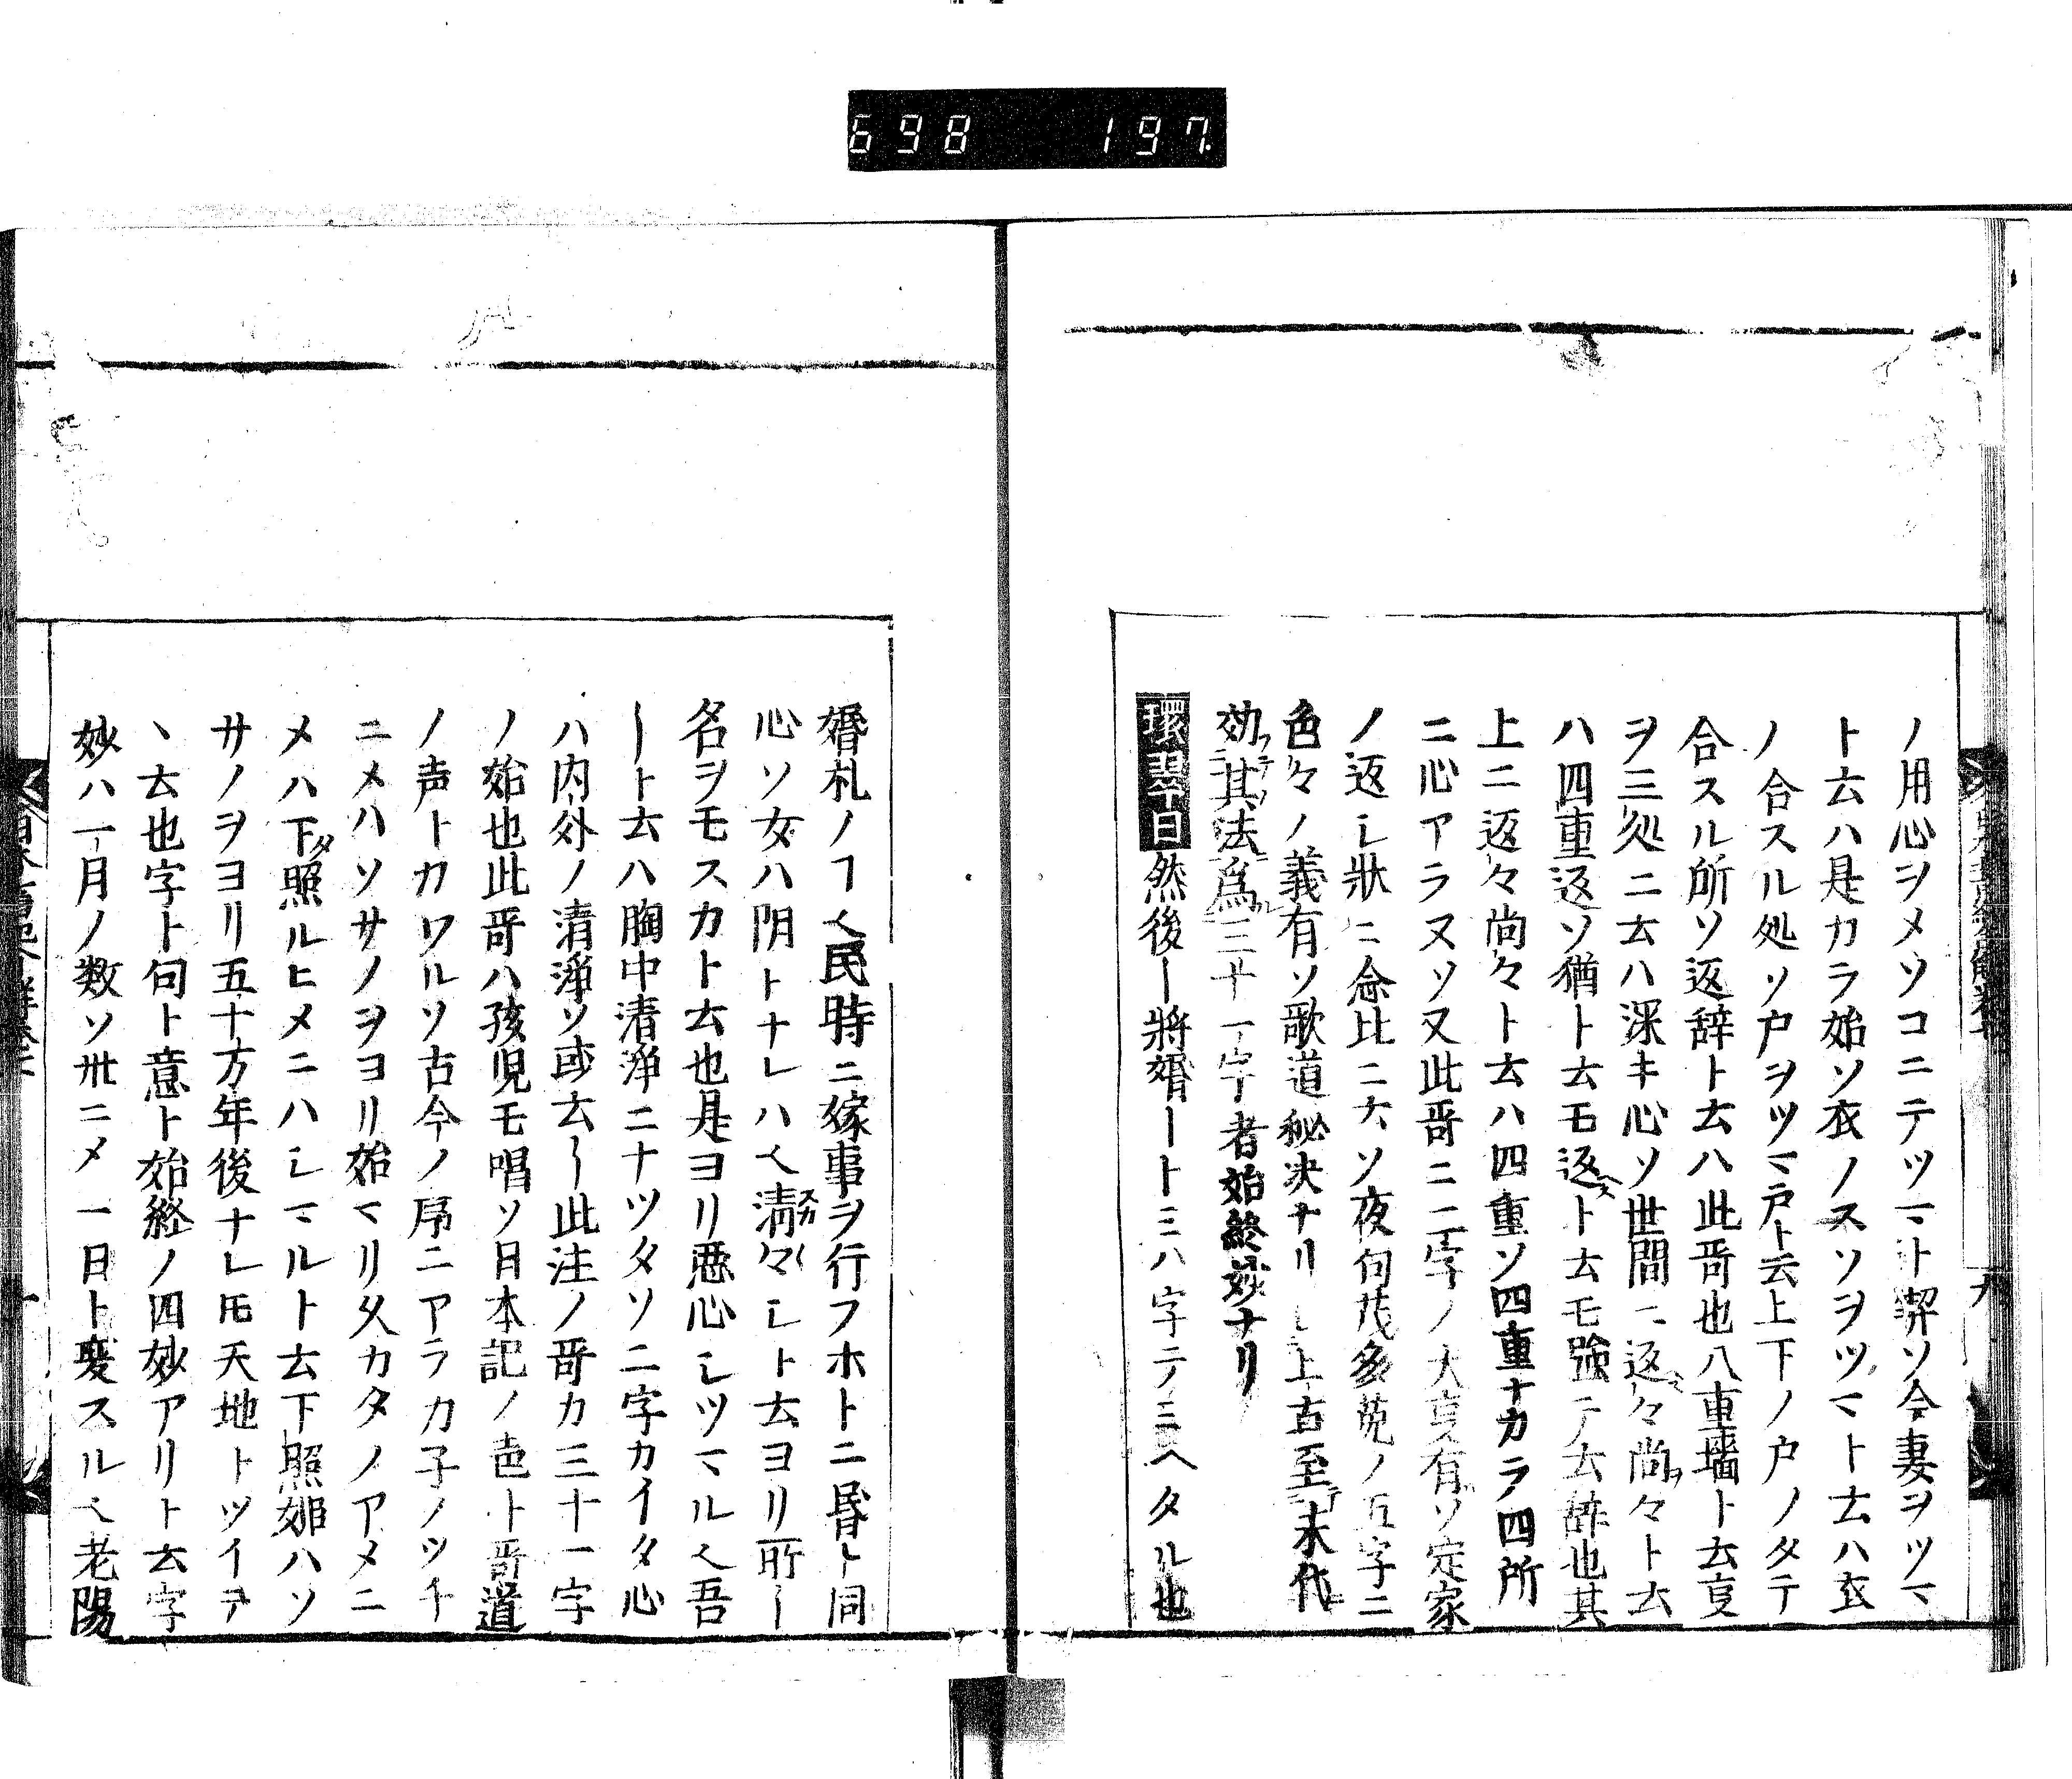 698 197.
ノ用心ヲメソコニテツマト契ソ今妻ヲツマ
ト云ハ是カラ始ソ衣ノスソヲツマト云ハ衣
ノ合スル処ソ戸ヲツマ戸ト云上下ノ戸ノタテ
合スル所ソ返辞ト云ハ此哥也八重墻ト云夏
ヲ三処ニ云ハ深キ心ソ世間ニ返々尚々ト云
ハ四重返ソ猶ト云モ返ト云モ強テ云辞也其
上ニ返々尚々ト云ハ四重ソ四重ナカラ四所
ニ心アラヌソ又此哥ニ二字ノ大夏有ソ定家
ノ返乄状ニ念比ニ六ソ夜句茂多莵ノ五字ニ
色々ノ義有ソ歌道秘决ナリ上古至末代
効其法為三十一字者始終妙ナリ
環翠曰然後ー將婚ートミハ字テミヘタル也
婚礼ノヿ人民時ニ嫁事ヲ行フホトニ昏ト同
心ソ女ハ阴トナレハ人清々乄ト云ヨリ所ー
名ヲモスカト云也是ヨリ悪心乄ツマル人吾
ート云ハ胸中清浄ニナツタソ二字カイタ心
ハ内外ノ清浄ソ或云ー此注ノ哥カ三十一字
ノ始也此哥ハ孩児モ唱ソ日本記ノ色ト哥道
ノ声トカワルソ古今ノ序ニアラカ子ノツチ
ニメハソサノヲヨリ始マリ久カタノアメニ
メハ下照ルヒメニハ乄マルト云下照姫ハソ
サノヲヨリ五十万年後ナレ𪜈天地トツイテ
丶云也字ト句ト意ト始終ノ四妙アリト云字
妙ハ一月ノ数ソ卅ニメ一日ト変スル人老陽